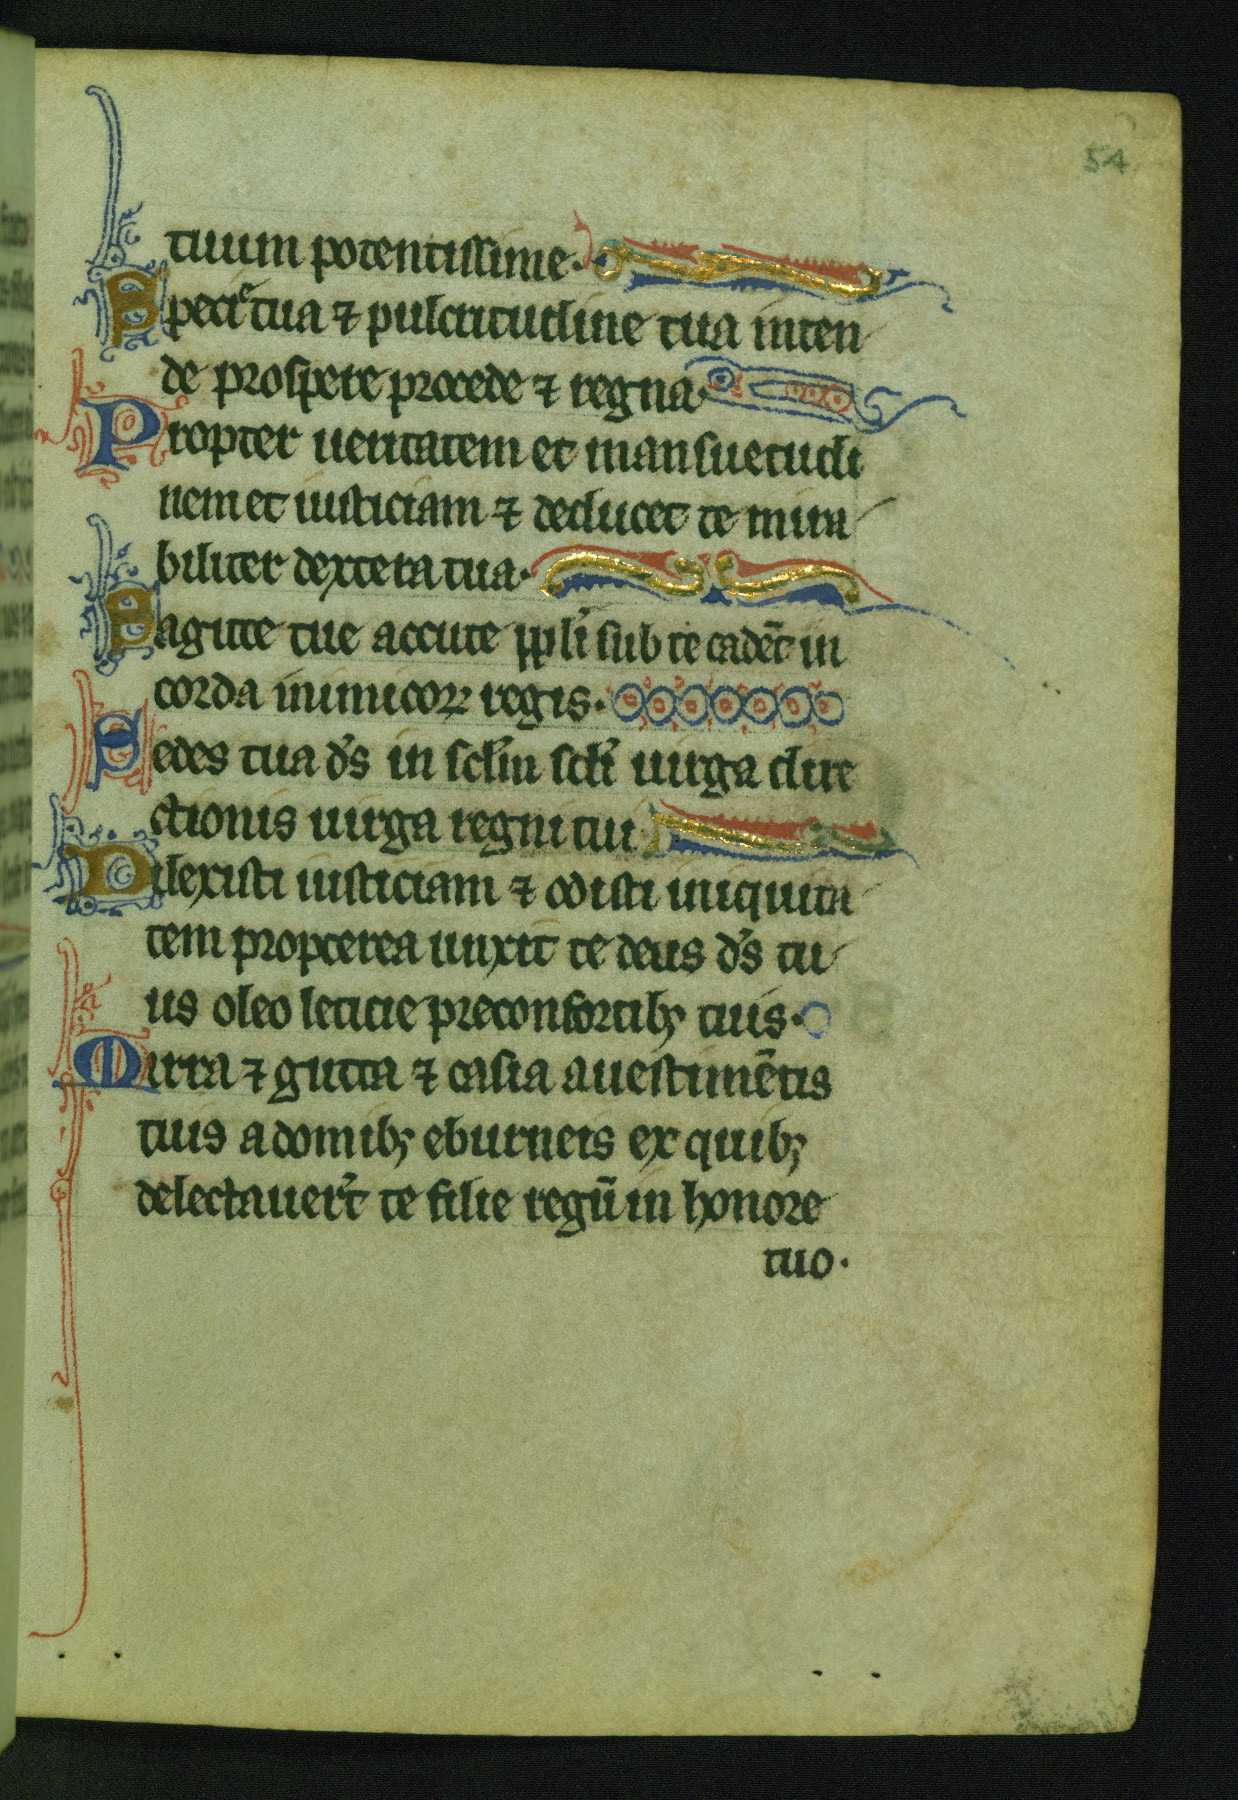 54
tuum potentissime.
Specie tua ⁊ pulcritudine tua inten
de prospere procede ⁊ regna.
Propter ueritatem et mansuetudi
nem et iusticiam ⁊ deducet te mira
biliter dextera tua.
Sagitte tue accute ppl̓i sub te cadēt in
corda inimicoꝝ regis.
Sedes tua d̓s in scl̓m scl̓i uirga dire
ctionis uirga regni tui
Dilexisti iusticiam ⁊ odisti iniquita
tem propterea unxit te deus d̓s tu
us oleo leticie preconsortibꝫ tuis.
Mirra ⁊ gutta ⁊ casia auestimētis
tuis adomibꝫ eburneis ex quibꝫ
delectauer̓t te filie regū in honore
tuo.